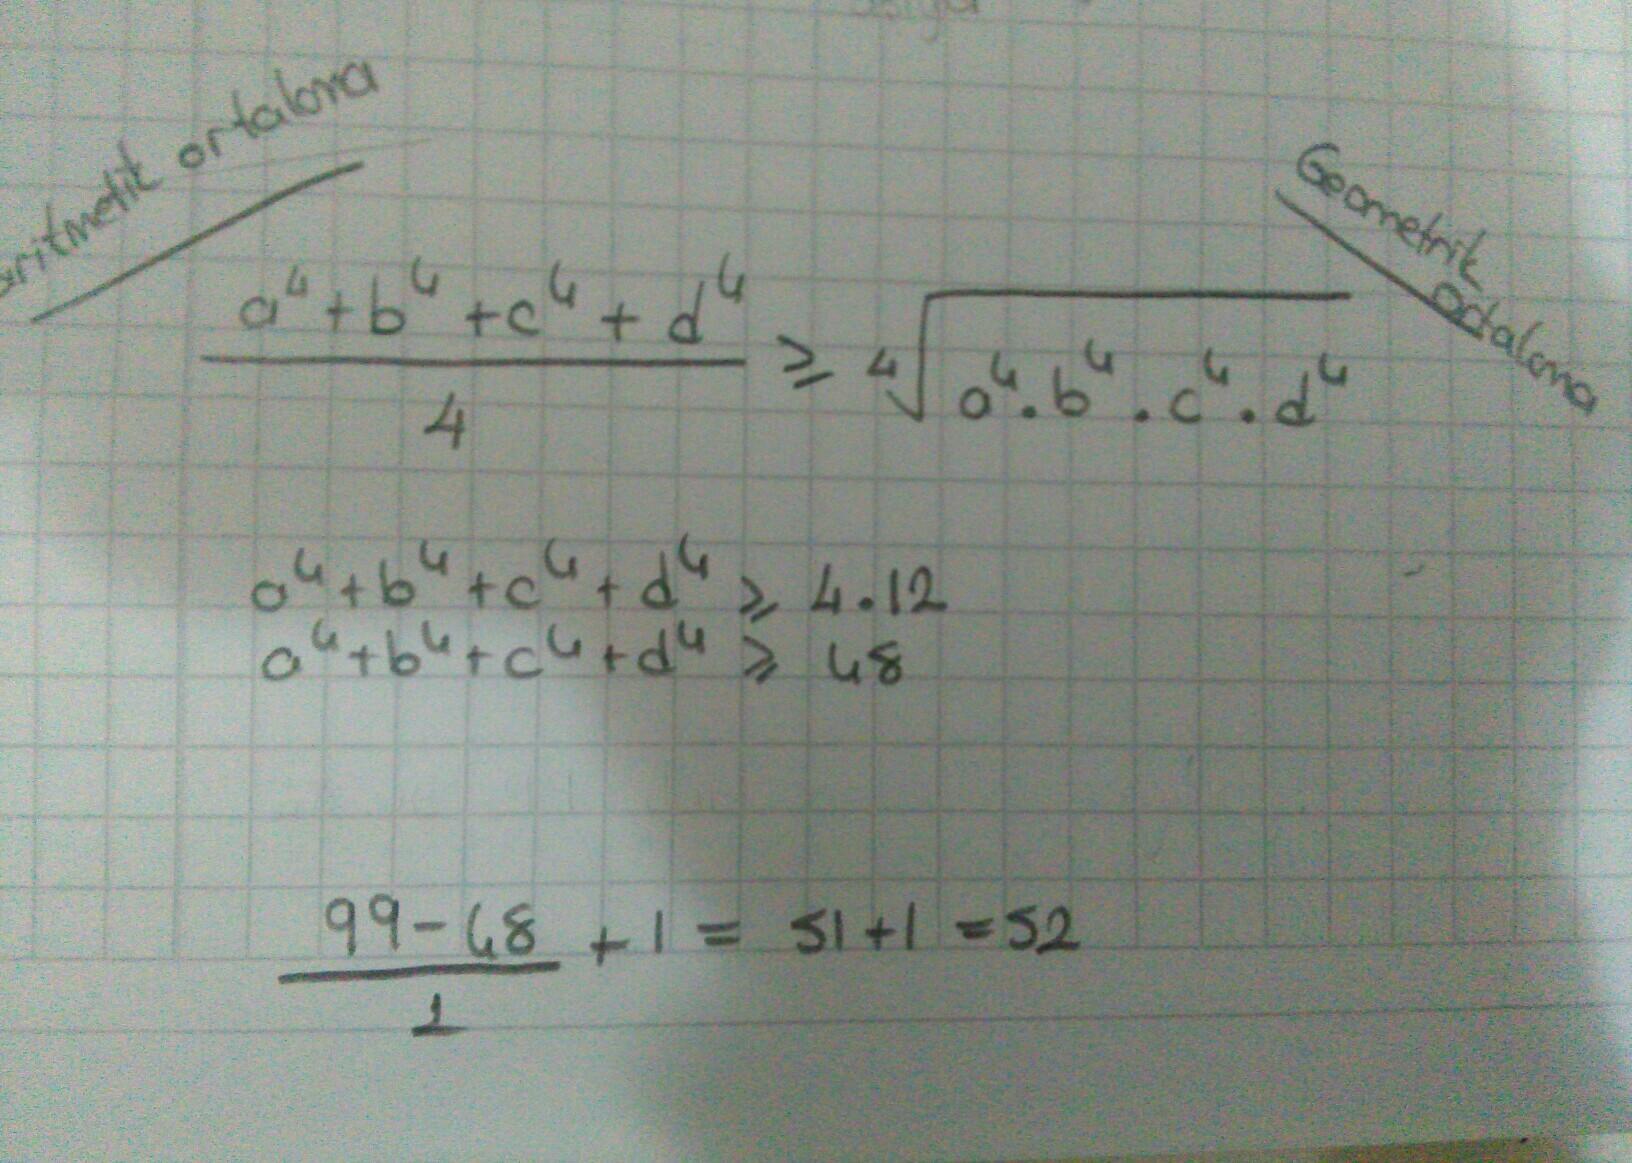 aritmetik ortalama
Geometrik ortalama
a⁴+b⁴+c⁴+d⁴ / 4 ≥ ⁴√a⁴.b⁴.c⁴.d⁴
a⁴+b⁴+c⁴+d⁴ ≥ 4.12
a⁴+b⁴+c⁴+d⁴ ≥ 48
99-48 / 1 + 1 = 51+1 = 52